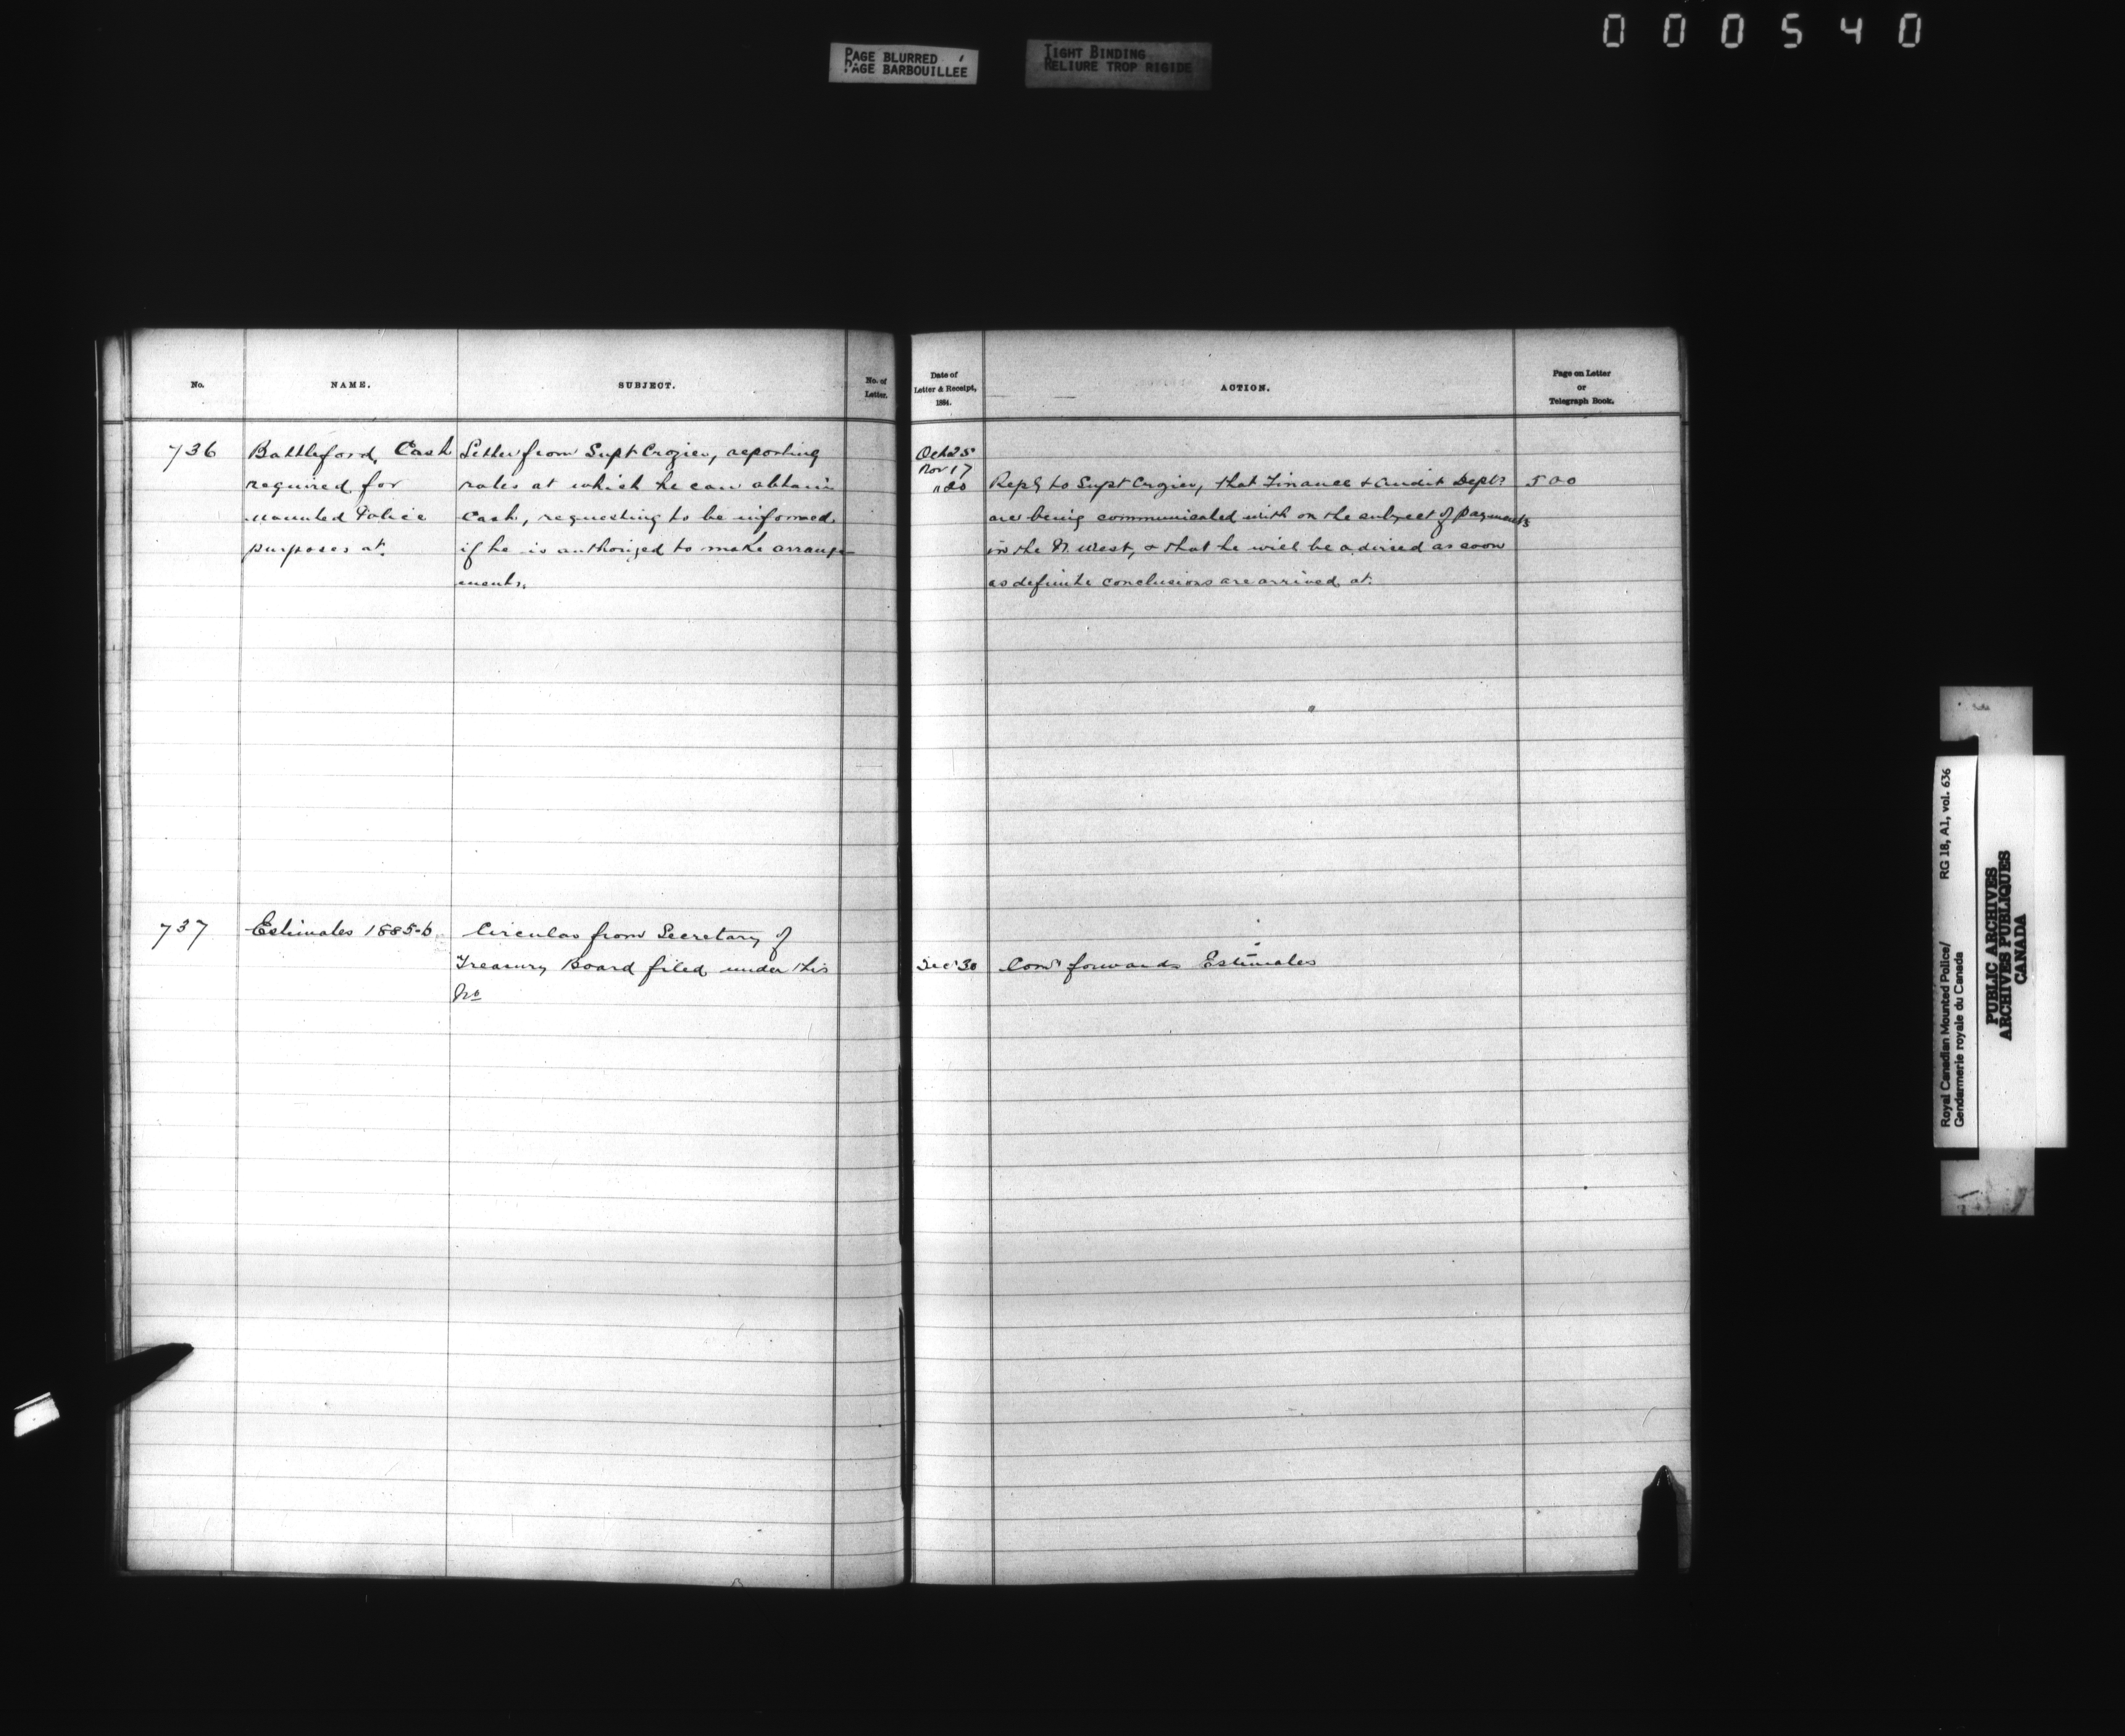 000540
PAGE BLURRED
PAGE BARBOUILLEE
TIGHT BINDING
RELIURE TROP RIGIDE
No.
NAME.
SUBJECT.
No. of
Letter.
736
Battleford, Cash
required for
Mounted Police
purposes at.
Letter from Supt Crozier, reporting
rates at which he can obtain
Cash, requesting to be informed
if he is authorized to make arrange-
ments.
737
Estimates 1885-6
Circular from Secretary of
Treasury Board filed under this
No
Date of
Letter & Receipt,
1884.
ACTION.
Page on Letter
or
Telegraph Book.
Oct 25
Nov 17
" 20
Reply to Supt Crozier, that Finance & Audit Depts
are being communicated with on the subject of payments
in the N. West, & that he will be advised as soon
as definite conclusions are arrived at.
500
Dec 30
Comr forwards Estimates
Royal Canadian Mounted Police/
Gendarmerie royale du Canada
RG 18, A1, vol. 636
PUBLIC ARCHIVES
ARCHIVES PUBLIQUES
CANADA